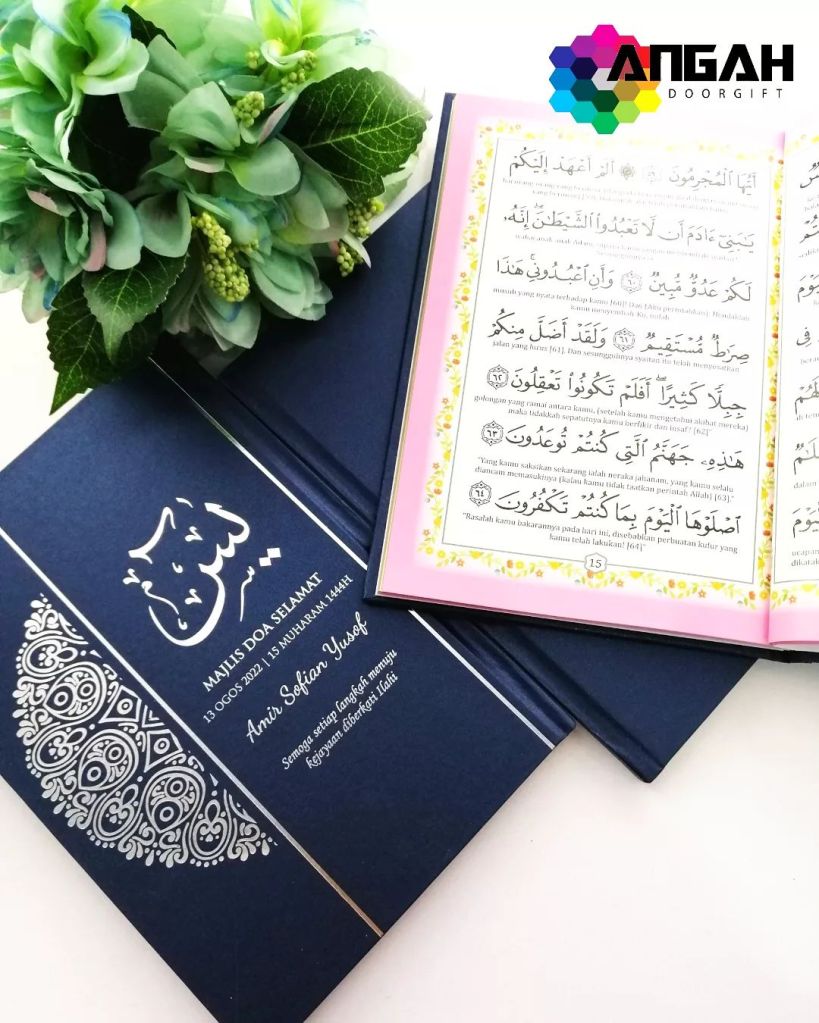 ANGAH
DOORGIFT
أَيُّهَا ٱلْمُجْرِمُونَ ٥٩ ۞ أَلَمْ أَعْهَدْ إِلَيْكُمْ
يَـٰبَنِىٓ ءَادَمَ أَن لَّا تَعْبُدُوا۟ ٱلشَّيْطَـٰنَ ۖ إِنَّهُۥ
لَكُمْ عَدُوٌّ مُّبِينٌ ٦٠ وَأَنِ ٱعْبُدُونِى ۚ هَـٰذَا
nyata terhadap kamu [60]! Dan (Aku perintahkan): Hendaklah
kamu menyembah Ku, inilah
صِرَٰطٌ مُّسْتَقِيمٌ ٦١ وَلَقَدْ أَضَلَّ مِنكُمْ
jalan yang lurus [61]. Dan sesungguhnya syaitan itu telah menyesatkan
جِبِلًّا كَثِيرًا ۖ أَفَلَمْ تَكُونُوا۟ تَعْقِلُونَ ٦٢
golongan yang ramai antara kamu, (setelah kamu mengetahui akibat mereka)
maka tidakkah sepatutnya kamu berfikir dan insaf? [62]"
هَـٰذِهِۦ جَهَنَّمُ ٱلَّتِى كُنتُمْ تُوعَدُونَ ٦٣
"Yang kamu saksikan sekarang ialah neraka jahanam, yang kamu selalu
diancam memasukinya (kalau kamu tidak taatkan perintah Allah) [63]."
ٱصْلَوْهَا ٱلْيَوْمَ بِمَا كُنتُمْ تَكْفُرُونَ ٦٤
"Rasalah kamu bakarannya pada hari ini, disebabkan perbuatan kufur yang
kamu telah lakukan! [64]"
15
يس
MAJLIS DOA SELAMAT
13 OGOS 2022 | 15 MUHARAM 1444H
Amir Sofian Yusof
Semoga setiap langkah menuju
kejayaan diberkati Ilahi